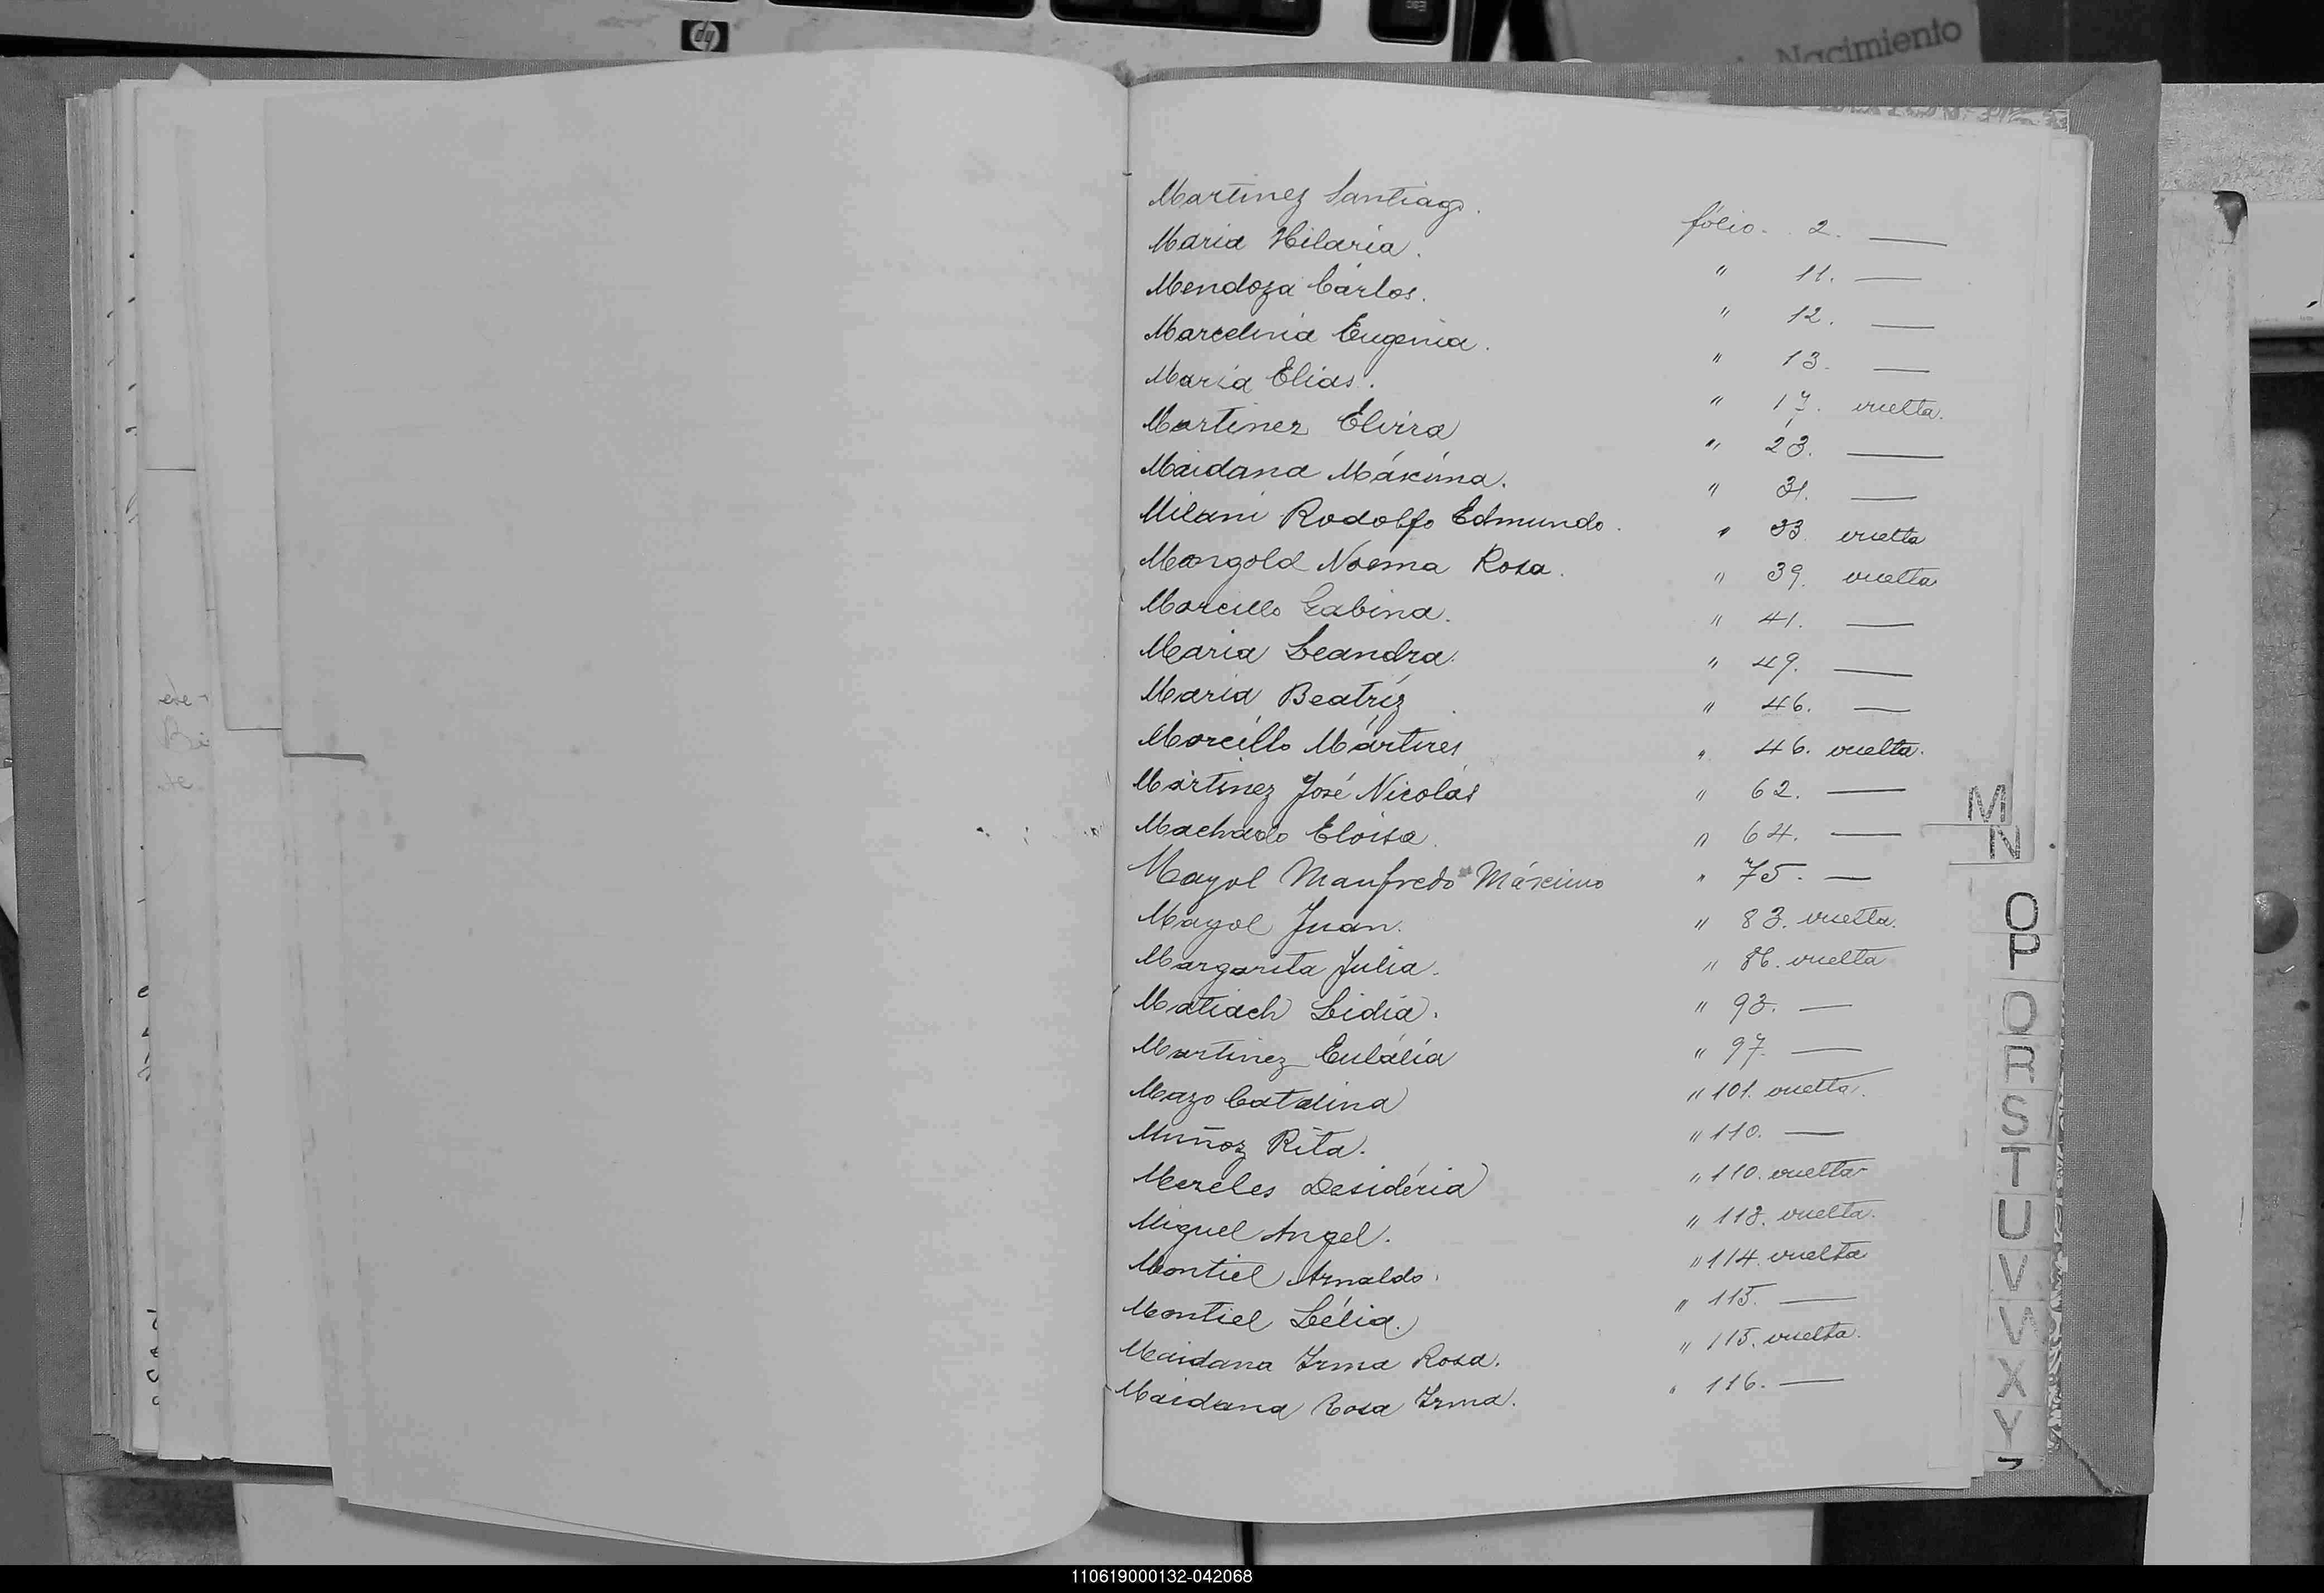 Nacimiento
Martinez Santiago. fólio. 2. —
Maria Hilaria. " 11. —
Mendoza Cárlos. " 12. —
Marcelina Eugenia. " 13. —
Maria Elias. " 17. vuelta.
Martinez Elvira " 23. —
Maidana Máxima. " 31. —
Milani Rodolfo Edmundo. " 33 vuelta
Mangold Noema Rosa. " 39. vuelta
Morcillo Gabina. " 41. —
Maria Leandra. " 49. —
Maria Beatriz. " 46. —
Morcillo Mártires " 46. vuelta.
Martinez José Nicolás " 62. —
Machado Eloisa. " 64. —
Mayol Manfredo Máximo " 75. —
Mayol Juan. " 83. vuelta.
Margarita Julia. " 86. vuelta
Matiach Lidia. " 93. —
Martinez Eulália " 97. —
Mazo Catalina " 101. vuelta.
Muñoz Rita. " 110. —
Mereles Desidéria " 110. vuelta
Miguel Angel. " 113. vuelta.
Montiel Arnaldo. " 114. vuelta
Montiel Lélia. " 115. —
Maidana Irma Rosa. " 115. vuelta.
Maidana Rosa Irma. " 116. —
M
N
O
P
Q
R
S
T
U
V
W
X
Y
110619000132-042068